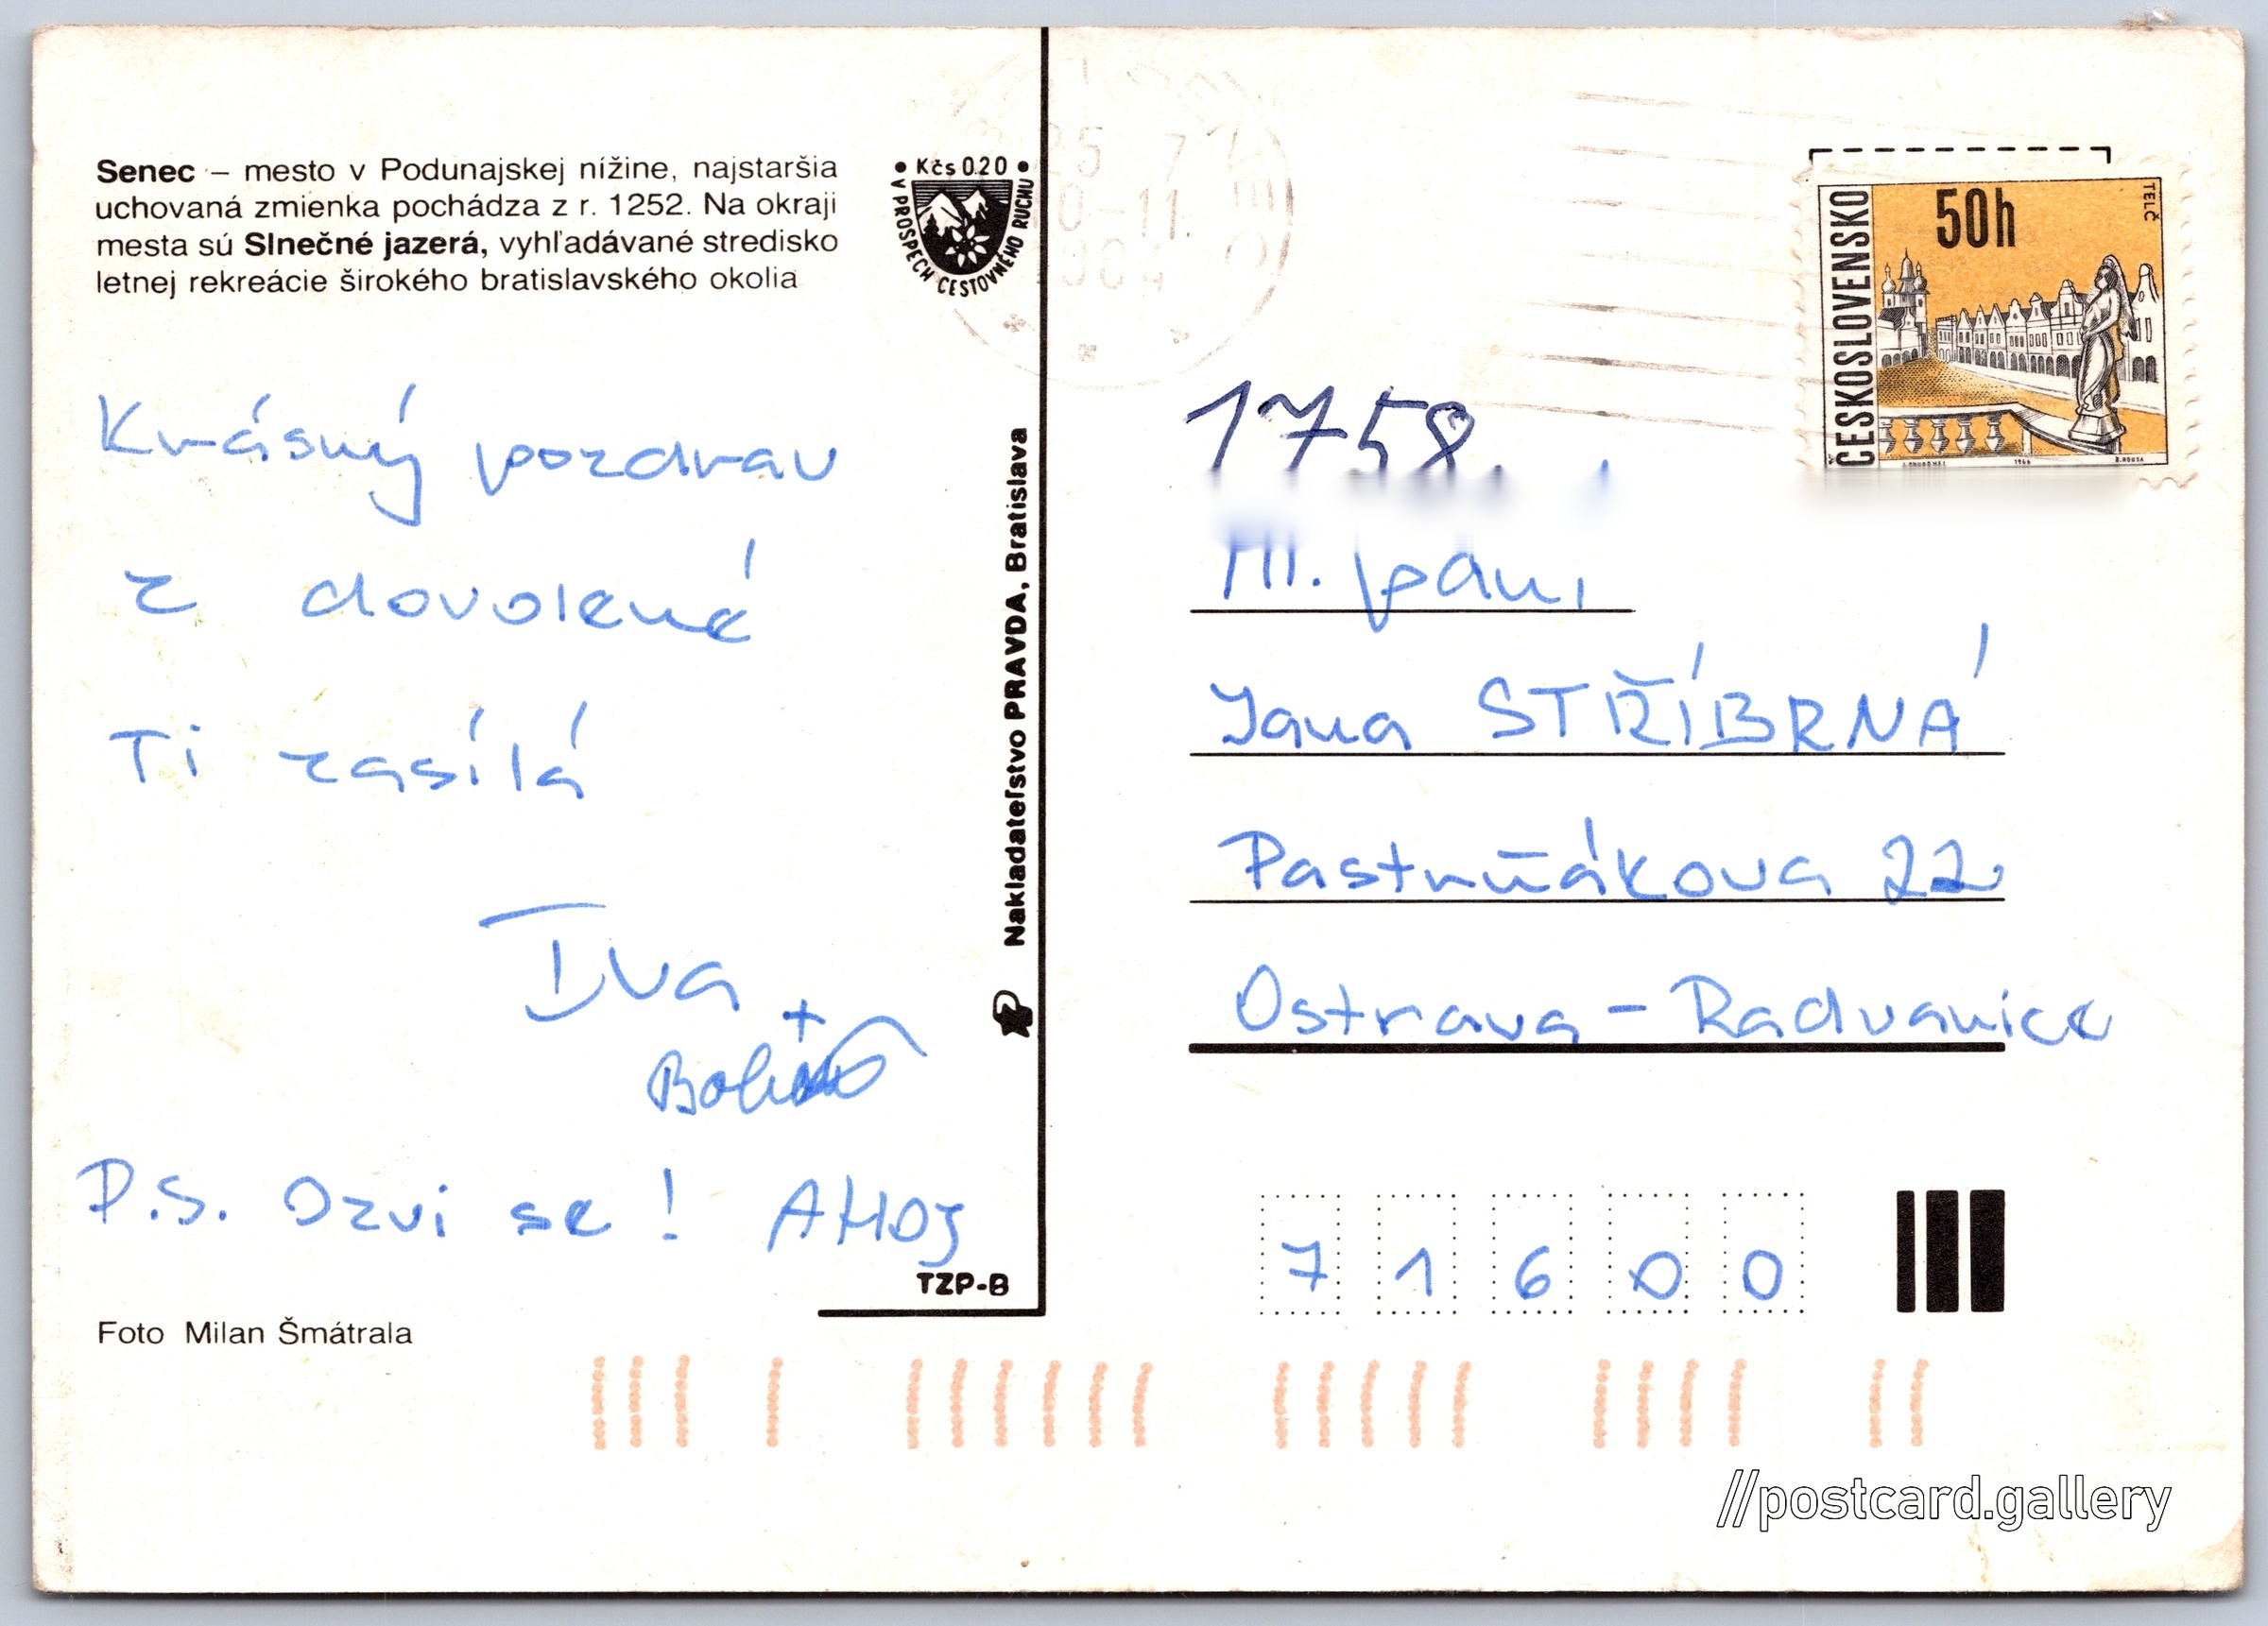 Senec – mesto v Podunajskej nížine, najstaršia
uchovaná zmienka pochádza z r. 1252. Na okraji
mesta sú Slnečné jazerá, vyhľadávané stredisko
letnej rekreácie širokého bratislavského okolia
• Kčs 0.20 •
V PROSPECH CESTOVNÉHO RUCHU
Krásný pozdrav
z dovolené
Ti zasílá
Iva
+
P.S. Ozvi se! AHOJ
TZP-B
Foto Milan Šmátrala
Nakladateľstvo PRAVDA, Bratislava
ČESKOSLOVENSKO
50h
TELČ
1966
1758.
Jana STŘÍBRNÁ
Pastrňákova 22
Ostrava – Radvanice
7 1 6 0 0
//postcard.gallery